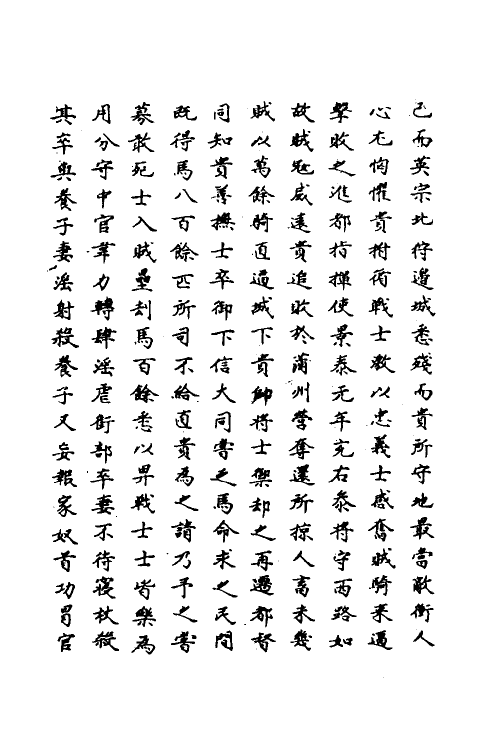 已而英宗北狩邊城悉殘而貴所守地最當敵衝人
心尤恟懼貴拊循戰士敎以忠義士感奮賊騎來逼
擊敗之進都指揮使景泰元年充右叅將守西路如
故賊寇威遠貴追敗於蒲州營奪還所掠人畜未幾
賊以萬餘騎直逼城下貴帥將士禦却之再遷都督
同知貴善撫士卒御下信大同嘗乏馬命求之民間
既得馬八百餘匹所司不給直貴為之請乃予之嘗
募敢死士入賊壘刦馬百餘悉以畀戰士士皆樂為
用分守中官韋力轉肆淫虐銜部卒妻不待寢杖殺
其卒與養子妻淫射殺養子又妄報家奴首功冒官